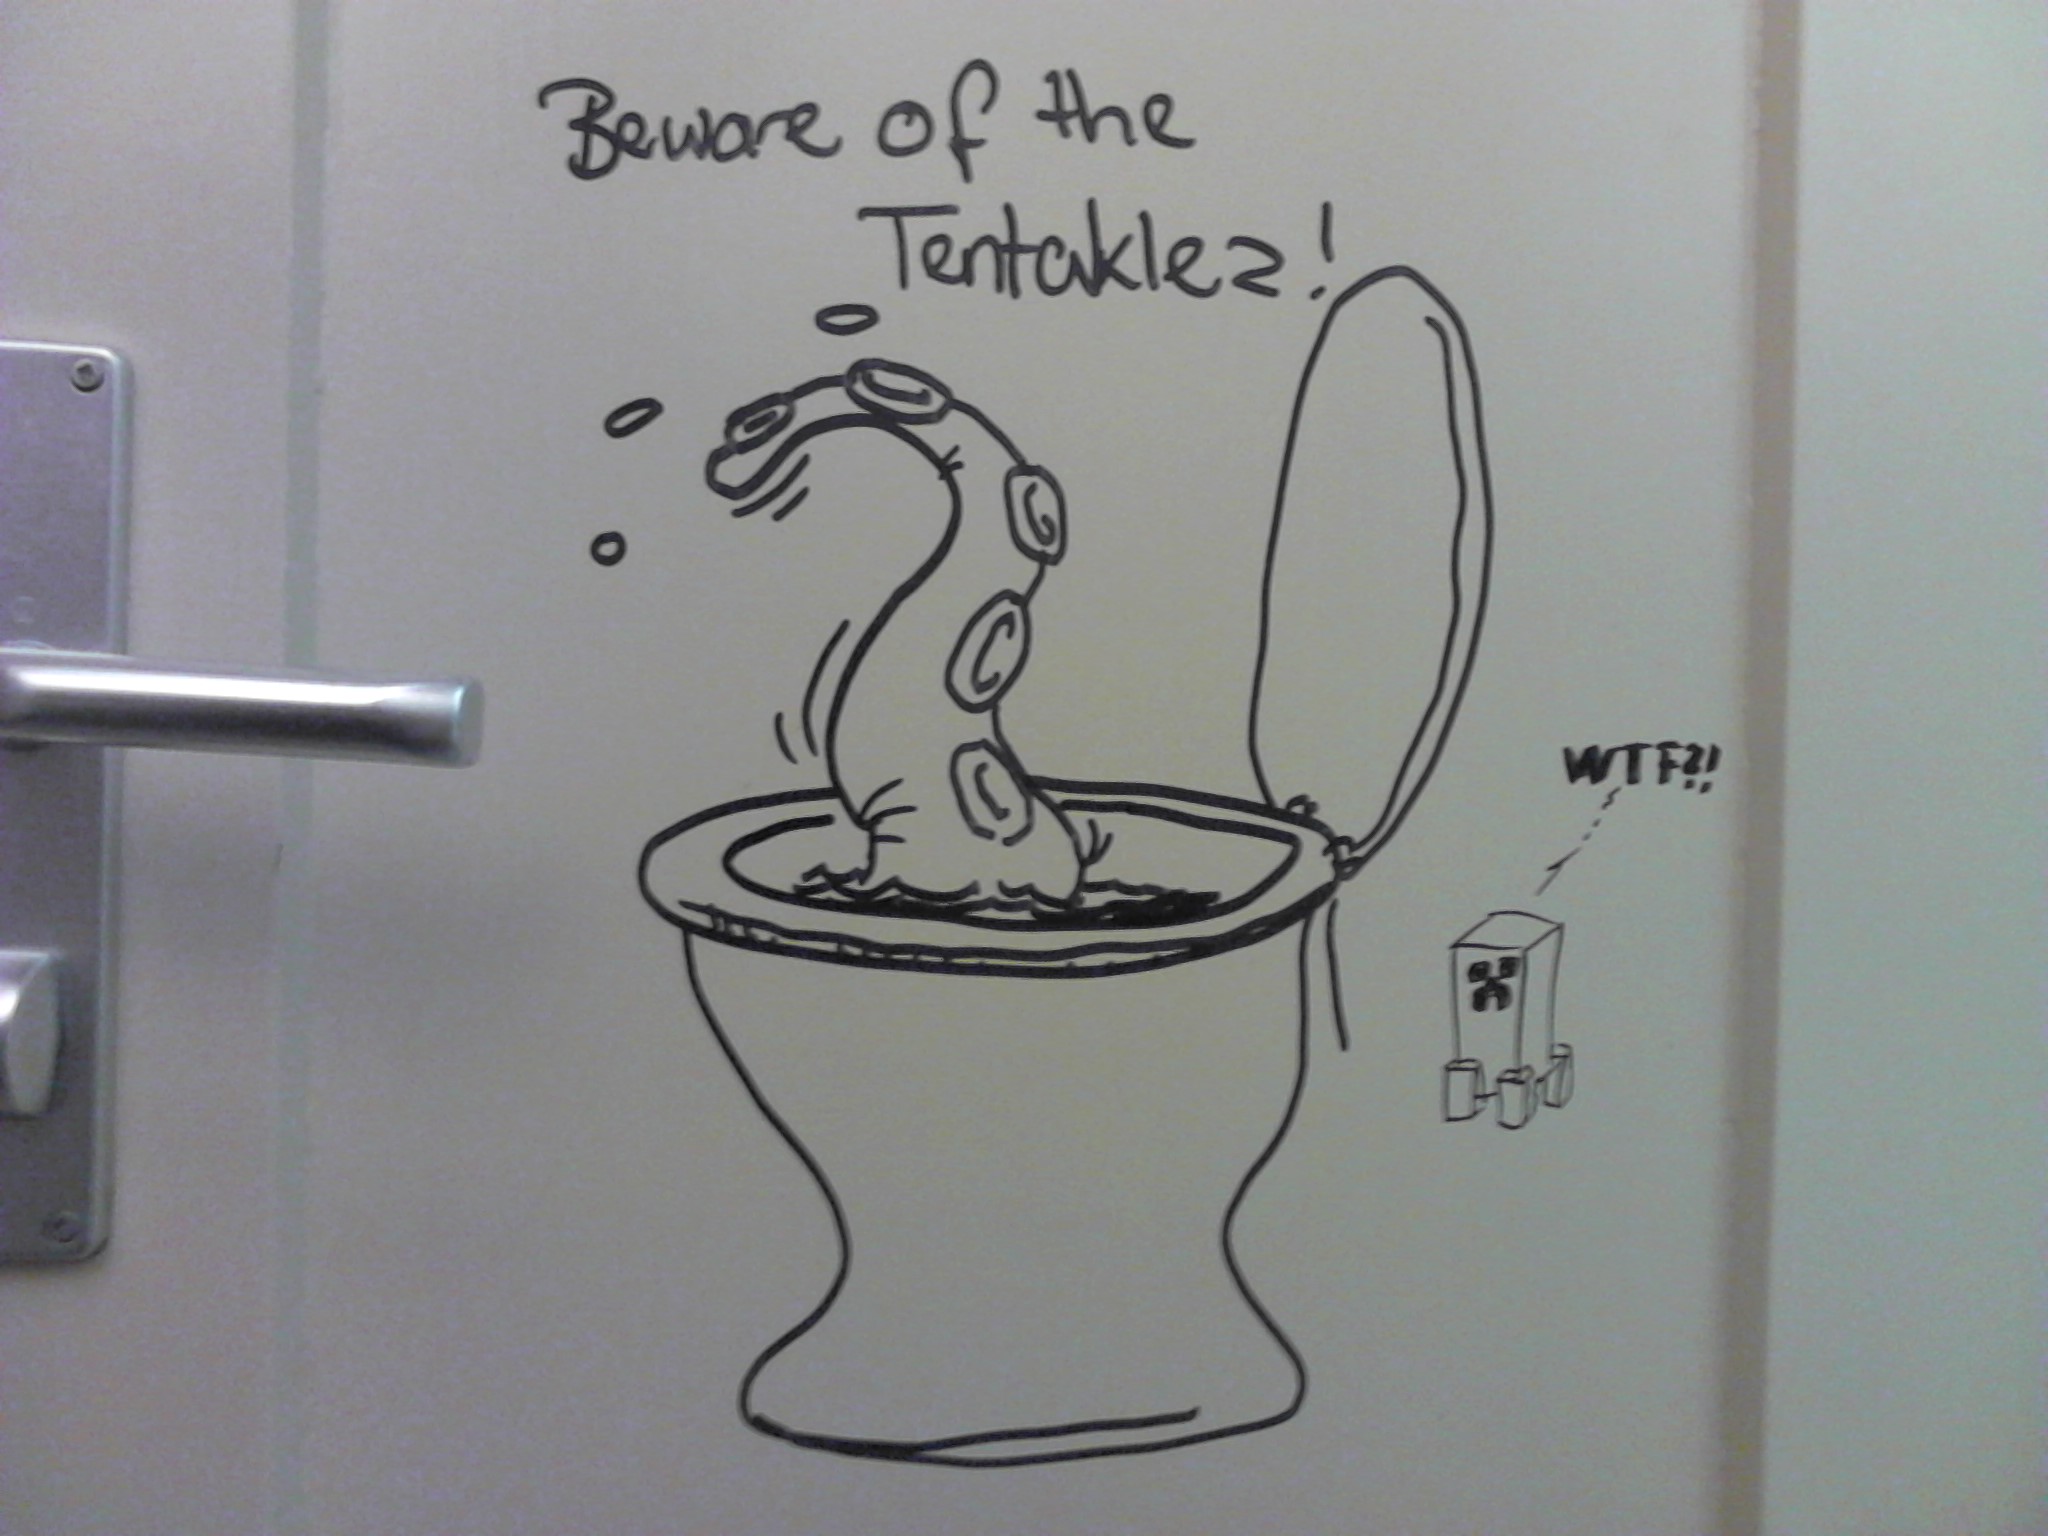 Beware of the
Tentaklez!
WTF?!